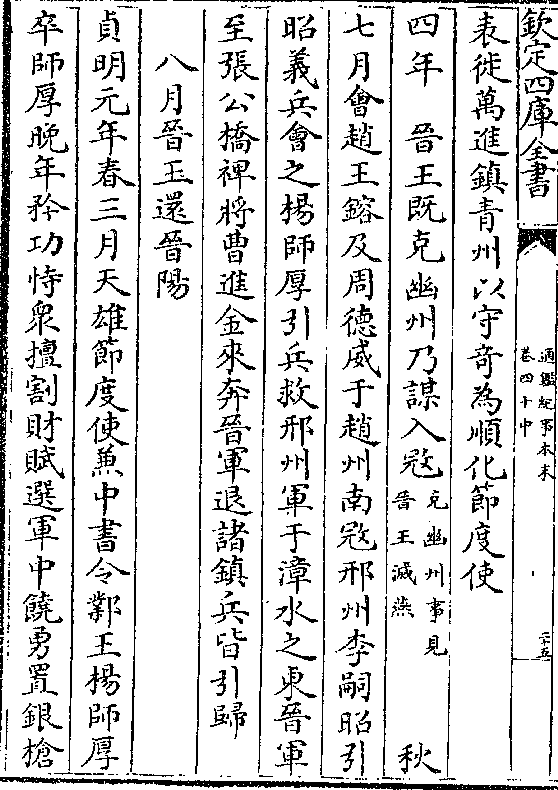 欽定四庫全書
通鑑紀事本末
卷四十中
二十五
表徙萬進鎮青州以守竒為順化節度使
四年　晉王既克幽州乃謀入宼克幽州事見晉王滅燕　秋
七月會趙王鎔及周德威于趙州南宼邢州李嗣昭引
昭義兵會之楊師厚引兵救邢州軍于漳水之東晉軍
至張公橋裨將曹進金來奔晉軍退諸鎮兵皆引歸
八月晉王還晉陽
貞明元年春三月天雄節度使兼中書令鄴王楊師厚
卒師厚晚年矜功恃衆擅割財賦選軍中饒勇置銀槍